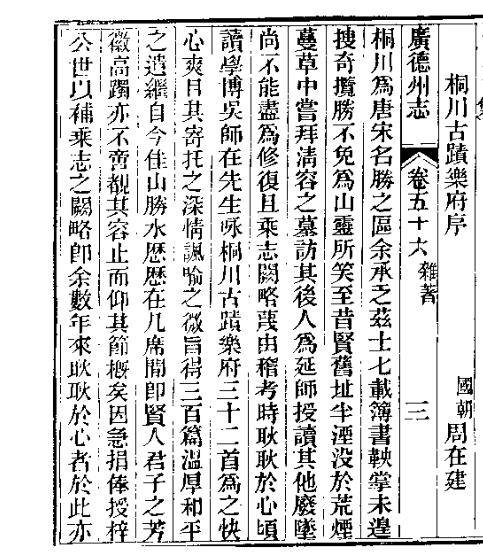 桐川古蹟樂府序 國朝周在建
廣德州志 卷五十六 雜著 三
桐川為唐宋名勝之區余承乏茲土七載簿書鞅掌未遑
搜奇攬勝不免為山靈所笑至昔賢舊址半湮没於荒煙
蔓草中嘗拜清容之墓訪其後人為延師授讀其他廢墜
尚不能盡為修復且乘志闕略蔑由稽考時耿耿於心頃
讀學博吳師在先生咏桐川古蹟樂府三十二首為之快
心爽目其寄托之深情諷喻之微旨得三百篇溫厚和平
之遺繼自今佳山勝水歷歷在几席間即賢人君子之芳
徽高躅亦不啻覩其容止而仰其節概矣因急捐俸授梓
公世以補乘志之闕略即余數年來耿耿於心者於此亦